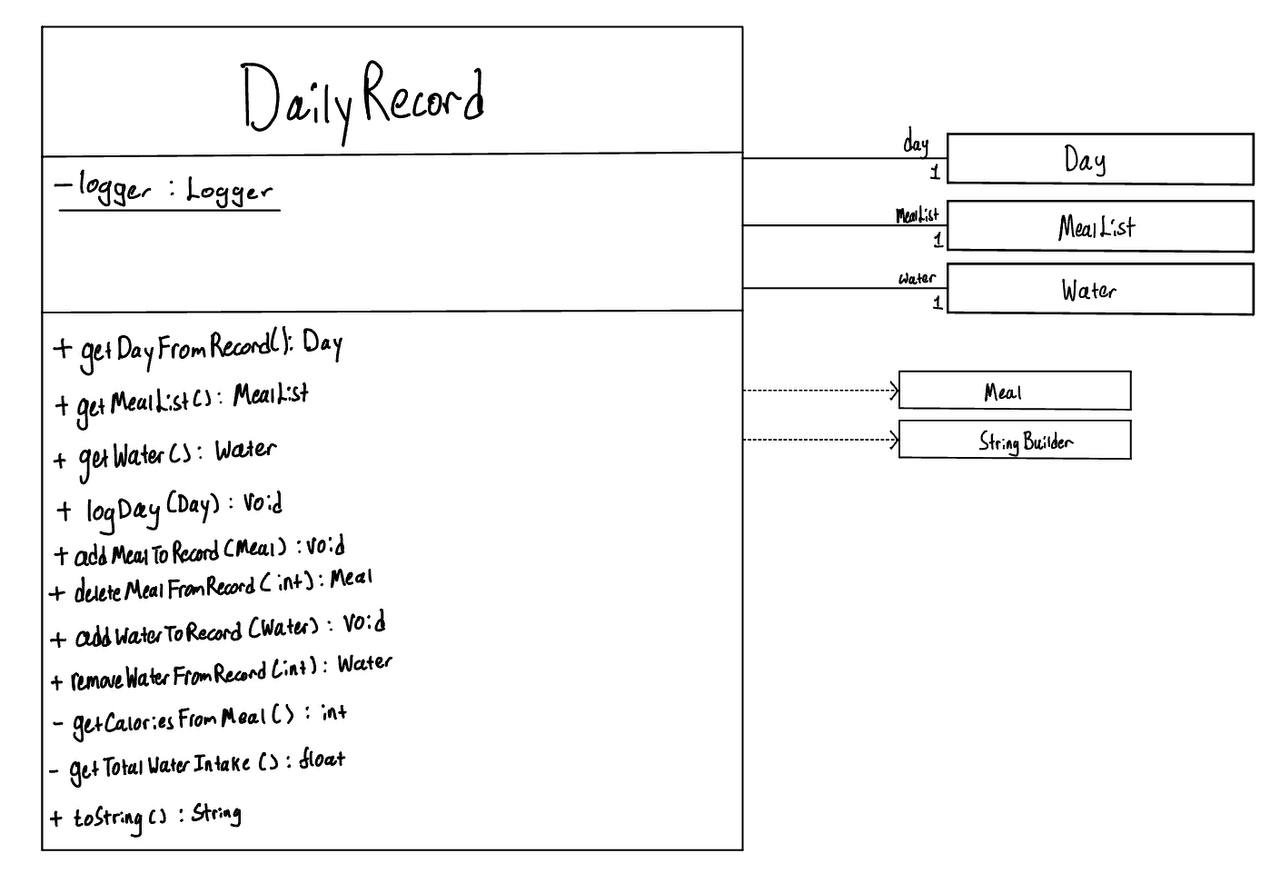 DailyRecord
-logger : Logger
+ getDayFromRecord(): Day
+ getMealList(): MealList
+ getWater(): Water
+ logDay(Day) : void
+ addMealToRecord(Meal) : void
+ deleteMealFromRecord(int): Meal
+ addWaterToRecord(Water) : void
+ removeWaterFromRecord(int): Water
- getCaloriesFromMeal() : int
- getTotalWaterIntake() : float
+ toString() : String
day
1
Day
MealList
1
MealList
water
1
Water
Meal
StringBuilder